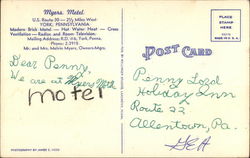 Myers Motel
U.S. Route 30 — 2½ Miles West
YORK, PENNSYLVANIA
Modern Brick Motel — Hot Water Heat — Cross
Ventilation — Radios and Room Television.
Mailing Address: R.D. #6, York, Penna.
Phone: 2.3915
Mr. and Mrs. Melvin Myers, Owners-Mgrs.
POST CARD
Dear Penny,
We are at Myers Motel
motel
Penny Lord
Holiday Inn
Route 22
Allentown, Pa.